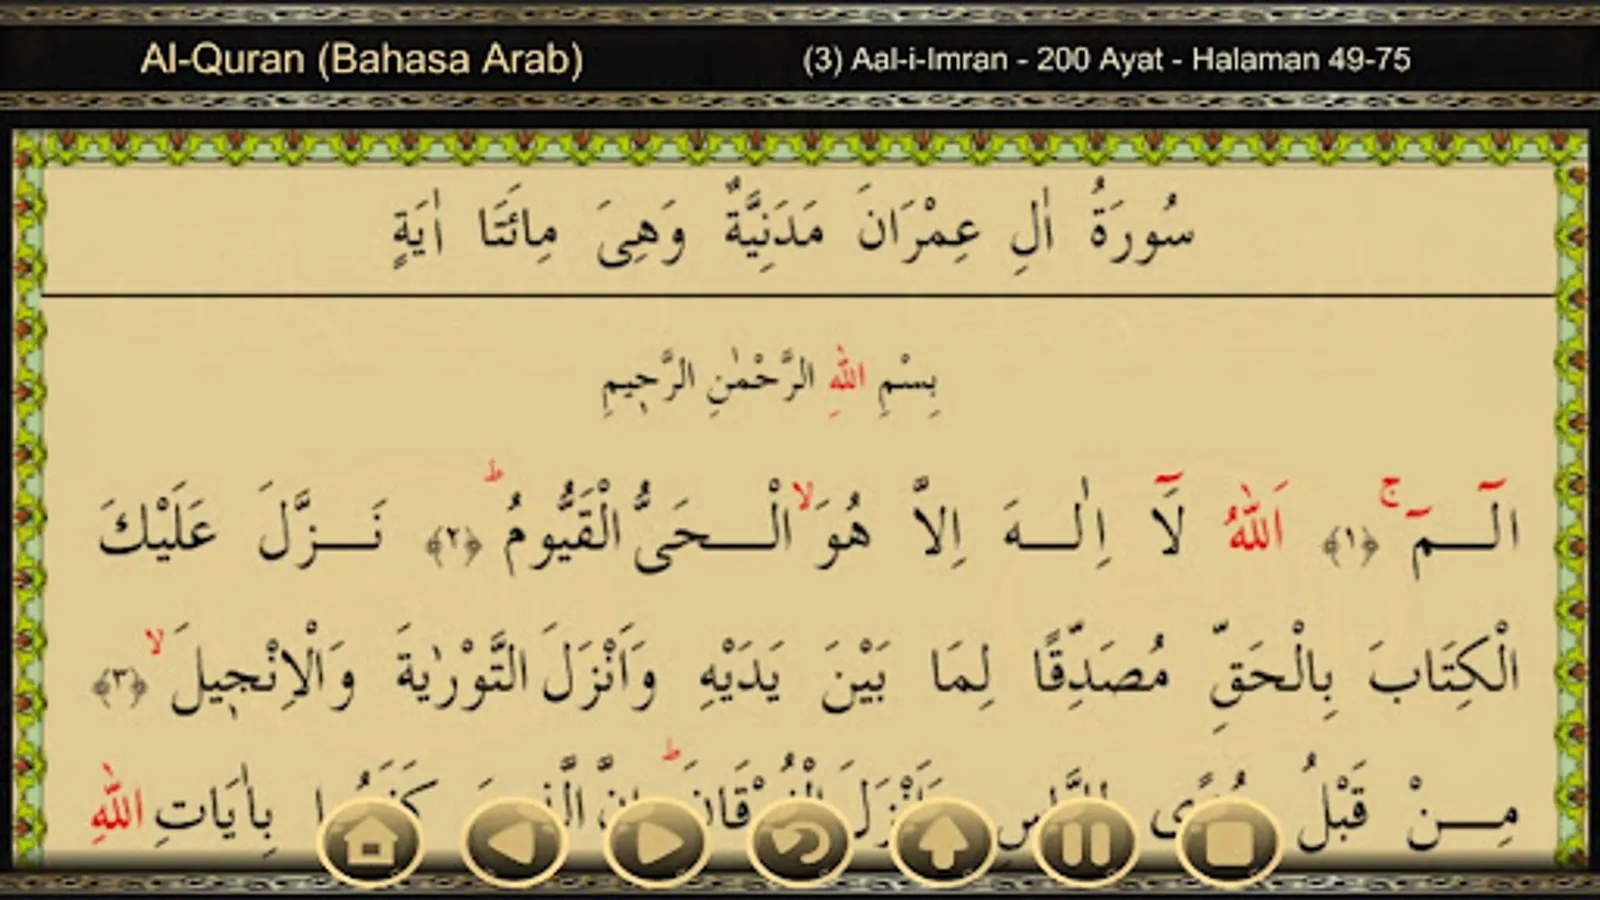 Al-Quran (Bahasa Arab)
(3) Aal-i-Imran - 200 Ayat - Halaman 49-75
سُورَةُ اٰلِ عِمْرَانَ مَدَنِيَّةٌ وَهِىَ مِائَتَا اٰيَةٍ
بِسْمِ اللّٰهِ الرَّحْمٰنِ الرَّح۪يمِ
الٓمٓ ۚ ﴿١﴾ اَللّٰهُ لَٓا اِلٰهَ اِلَّا هُوَ ۙ الْحَىُّ الْقَيُّومُ ؕ ﴿٢﴾ نَزَّلَ عَلَيْكَ
الْكِتَابَ بِالْحَقِّ مُصَدِّقًا لِمَا بَيْنَ يَدَيْهِ وَاَنْزَلَ التَّوْرٰيةَ وَالْاِنْج۪يلَ ۙ ﴿٣﴾
مِنْ قَبْلُ هُدًى لِلنَّاسِ وَاَنْزَلَ الْفُرْقَانَ ؕ اِنَّ الَّذ۪ينَ كَفَرُوا بِاٰيَاتِ اللّٰهِ